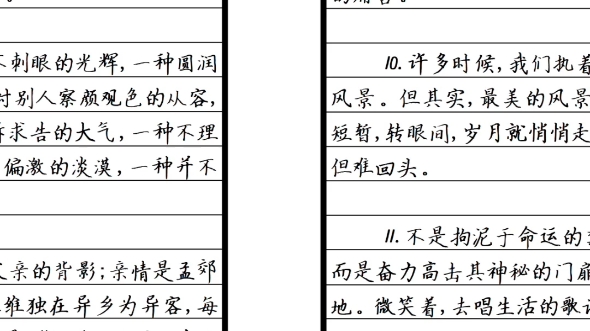 刺眼的光辉,一种圆润
对别人察颜观色的从容,
求告的大气,一种不理
偏激的淡漠,一种并不
亲的背影;亲情是孟郊
维独在异乡为异客,每
10.许多时候,我们执着
风景。但其实,最美的风景
短暂,转眼间,岁月就悄悄走
但难回头。
11.不是拘泥于命运的
而是奋力高击其神秘的门扉
地。微笑着,去唱生活的歌